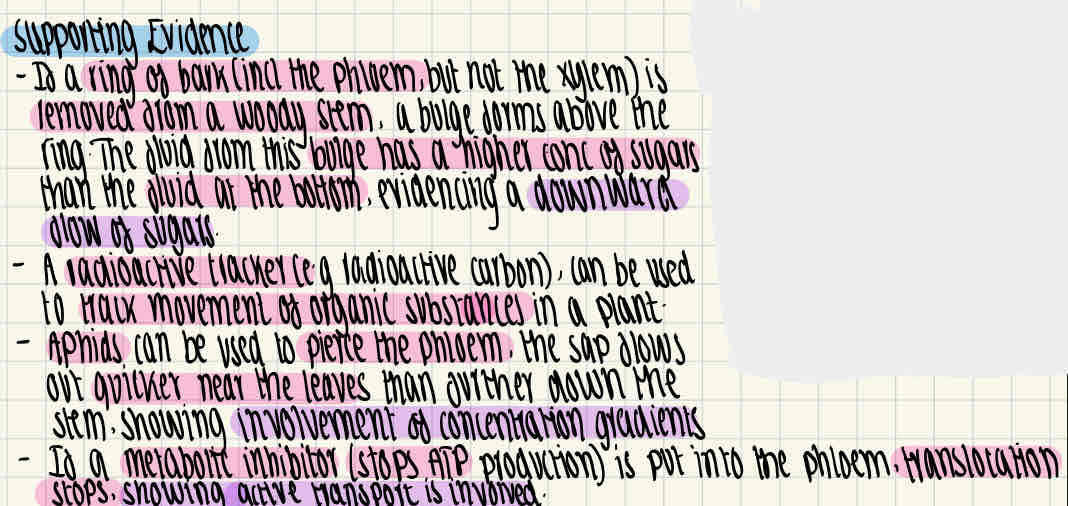 Supporting Evidence
- If a ring of bark (incl the phloem, but not the xylem) is
removed from a woody stem, a bulge forms above the
ring. The fluid from this bulge has a higher conc of sugars
than the fluid at the bottom, evidencing a downward
flow of sugars.
- A radioactive tracker (e.g radioactive carbon), can be used
to track movement of organic substances in a plant.
- Aphids can be used to pierce the phloem, the sap flows
out quicker near the leaves than further down the
stem, showing involvement of concentration gradients
- If a metabolic inhibitor (stops ATP production) is put into the phloem, translocation
stops, showing active transport is involved.